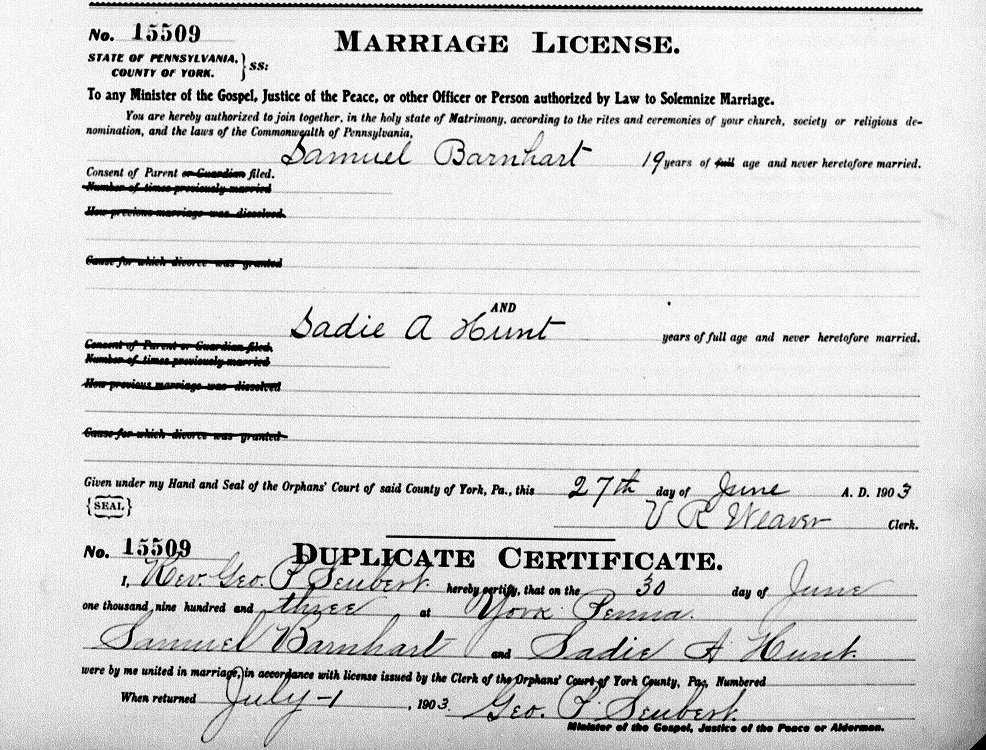 No. 15509
MARRIAGE LICENSE.
STATE OF PENNSYLVANIA,
COUNTY OF YORK. } ss:
To any Minister of the Gospel, Justice of the Peace, or other Officer or Person authorized by Law to Solemnize Marriage.
You are hereby authorized to join together, in the holy state of Matrimony, according to the rites and ceremonies of your church, society or religious de-
nomination, and the laws of the Commonwealth of Pennsylvania,
Samuel Barnhart 19 years of full age and never heretofore married.
Consent of Parent or Guardian filed.
Number of times previously married
How previous marriage was dissolved.
Cause for which divorce was granted
AND
Sadie A Hunt years of full age and never heretofore married.
Consent of Parent or Guardian filed.
Number of times previously married
How previous marriage was dissolved
Cause for which divorce was granted
Given under my Hand and Seal of the Orphans' Court of said County of York, Pa., this 27th day of June A. D. 1903
{SEAL}
V R Weaver Clerk.
No. 15509
DUPLICATE CERTIFICATE.
I, Rev. Geo. P Seubert hereby certify, that on the 30 day of June
one thousand, nine hundred and three at York Penna.
Samuel Barnhart and Sadie A Hunt
were by me united in marriage, in accordance with license issued by the Clerk of the Orphans' Court of York County, Pa., Numbered
When returned July-1, 1903. Geo. P Seubert
Minister of the Gospel, Justice of the Peace or Alderman.